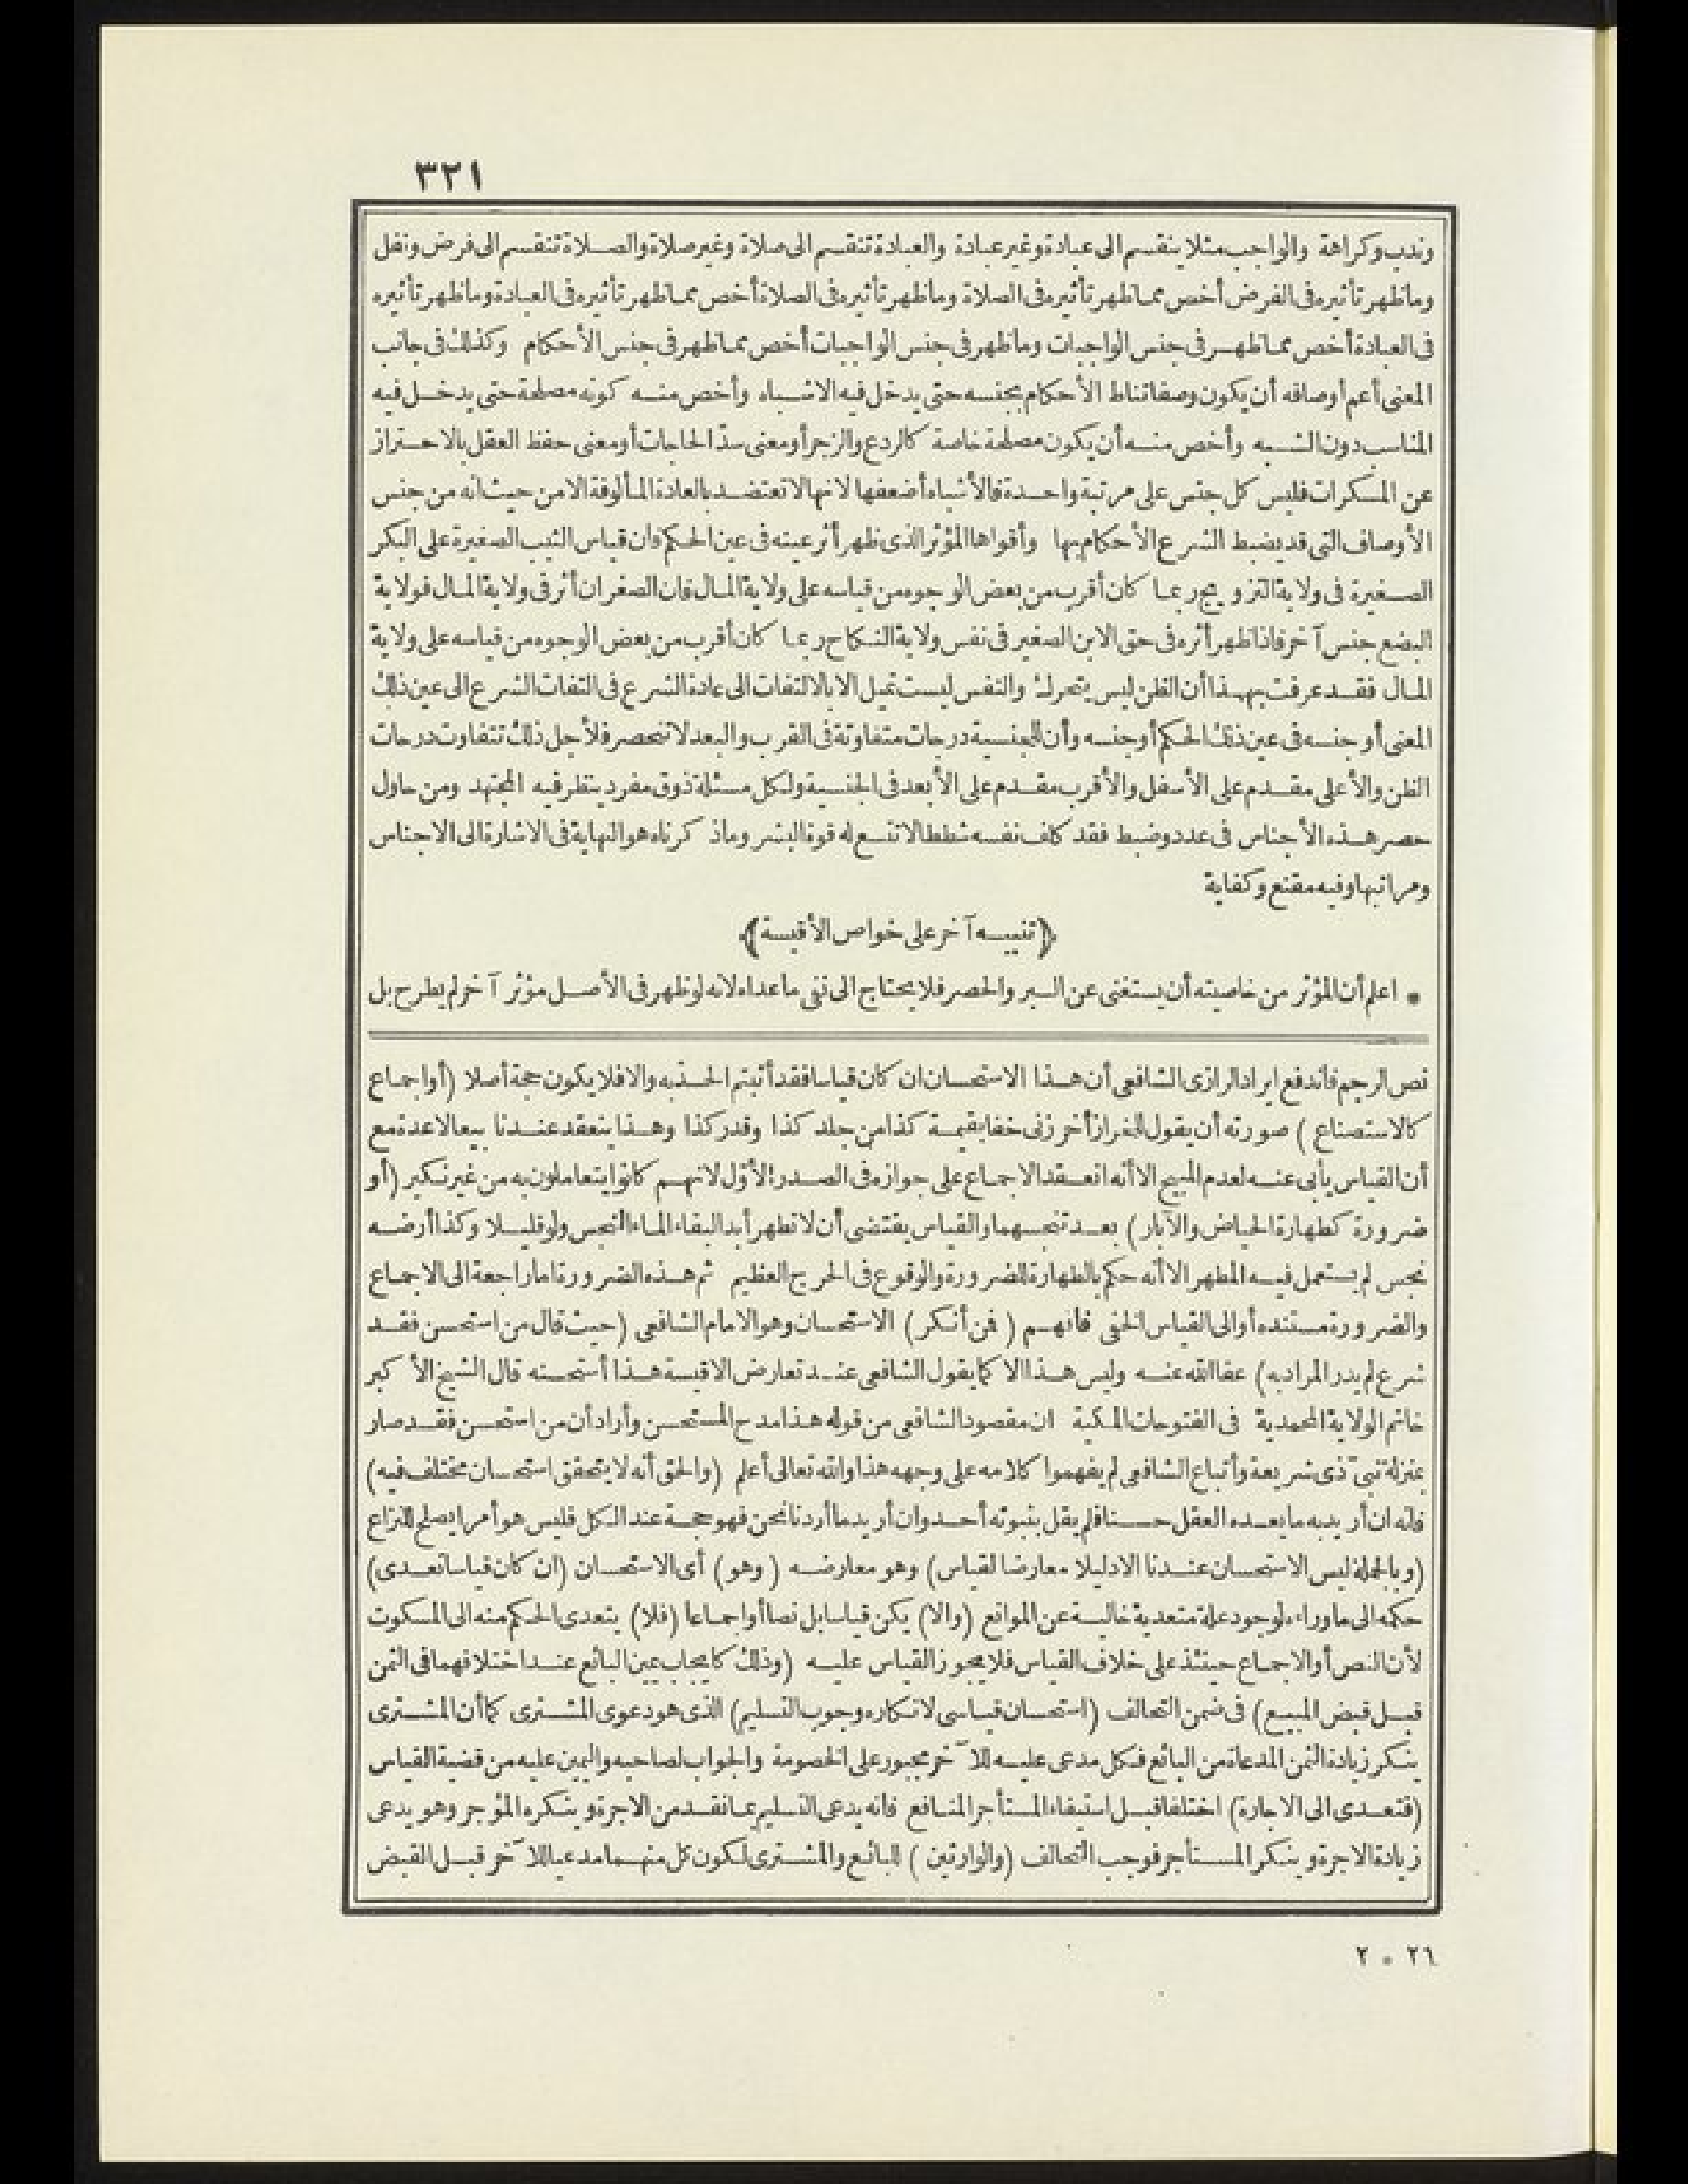 ٣٢١
وندب وكراهة والواجب مثلا ينقسم الى عبادة وغير عبادة والعبادة تنقسم الى صلاة وغير صلاة والصلاة تنقسم الى فرض ونفل
وما ظهر تأثيره فى الفرض أخص مما ظهر تأثيره فى الصلاة وما ظهر تأثيره فى الصلاة أخص مما ظهر تأثيره فى العبادة وما ظهر تأثيره
فى العبادة أخص مما ظهر فى جنس الواجبات وما ظهر فى جنس الواجبات أخص مما ظهر فى جنس الأحكام وكذلك فى جانب
المعنى أعم أوصافه أن يكون وصفا تناط الأحكام بجنسه حتى يدخل فيه الاشباه وأخص منه كونه مصلحة حتى يدخل فيه
المناسب دون الشبه وأخص منه أن يكون مصلحة خاصة كالردع والزجر أو معنى سدّ الحاجات أو معنى حفظ العقل بالاحتراز
عن المسكرات فليس كل جنس على مرتبة واحدة فالأشباه أضعفها لانها لا تعتضد بالعادة المألوفة الا من حيث انه من جنس
الأوصاف التى قد يضبط الشرع الأحكام بها وأقواها المؤثر الذى ظهر أثر عينه فى عين الحكم فان قياس الثيب الصغيرة على البكر
الصغيرة فى ولاية التزويج ربما كان أقرب من بعض الوجوه من قياسه على ولاية المال فان الصغر ان أثر فى ولاية المال فولاية
البضع جنس آخر فاذا ظهر أثره فى حق الابن الصغير فى نفس ولاية النكاح ربما كان أقرب من بعض الوجوه من قياسه على ولاية
المال فقد عرفت بهذا أن الظن ليس يتحرك والنفس ليست تميل الا بالالتفات الى عادة الشرع فى التفات الشرع الى عين ذلك
المعنى أو جنسه فى عين ذلك الحكم أو جنسه وأن للجنسية درجات متفاوتة فى القرب والبعد لا تنحصر فلأجل ذلك تتفاوت درجات
الظن والأعلى مقدم على الأسفل والأقرب مقدم على الأبعد فى الجنسية ولكل مسئلة ذوق مفرد ينظر فيه المجتهد ومن حاول
حصر هذه الأجناس فى عدد وضبط فقد كلف نفسه شططا لا تتسع له قوة البشر وما ذكرناه هو النهاية فى الاشارة الى الاجناس
ومراتبها وفيه مقنع وكفاية
﴿تنبيه آخر على خواص الأقيسة﴾
* اعلم أن المؤثر من خاصيته أن يستغنى عن السبر والحصر فلا يحتاج الى نفى ما عداه لانه لو ظهر فى الأصل مؤثر آخر لم يطرح بل
نص الرجم فاندفع ايراد الرازى الشافعى أن هذا الاستحسان ان كان قياسا فقد أثبتم الحد به والا فلا يكون حجة أصلا (أو اجماع
كالاستصناع) صورته أن يقول للخراز أخرزنى خفا بقيمة كذا من جلد كذا وقدر كذا وهذا ينعقد عندنا بيعا لا عدة مع
أن القياس يأبى عنه لعدم المبيح الا أنه انعقد الاجماع على جوازه فى الصدر الأوّل لانهم كانوا يتعاملون به من غير نكير (أو
ضرورة كطهارة الحياض والآبار) بعد تنجسهما والقياس يقتضى أن لا تطهر أبدا لبقاء الماء النجس ولو قليلا وكذا أرضه
نجس لم يستعمل فيه المطهر الا أنه حكم بالطهارة للضرورة والوقوع فى الحرج العظيم ثم هذه الضرورة اما راجعة الى الاجماع
والضرورة مستنده أو الى القياس الخفى فافهم (فمن أنكر) الاستحسان وهو الامام الشافعى (حيث قال من استحسن فقد
شرع لم يدر المراد به) عفا الله عنه وليس هذا الا كما يقول الشافعى عند تعارض الاقيسة هذا أستحسنه قال الشيخ الأكبر
خاتم الولاية المحمدية فى الفتوحات المكية ان مقصود الشافعى من قوله هذا مدح المستحسن وأراد أن من استحسن فقد صار
بمنزلة نبىّ ذى شريعة وأتباع الشافعى لم يفهموا كلامه على وجهه هذا والله تعالى أعلم (والحق أنه لا يتحقق استحسان مختلف فيه)
فانه ان أريد به ما يعده العقل حسنا فلم يقل بثبوته أحد وان أريد ما أردنا نحن فهو حجة عند الكل فليس هو أمرا يصلح للنزاع
(وبالجملة ليس الاستحسان عندنا الا دليلا معارضا لقياس) وهو معارضه (وهو) أى الاستحسان (ان كان قياسا تعدى)
حكمه الى ما وراءه لوجود علة متعدية خالية عن الموانع (والا) يكن قياسا بل نصا أو اجماعا (فلا) يتعدى الحكم منه الى المسكوت
لأن النص أو الاجماع حينئذ على خلاف القياس فلا يجوز القياس عليه (وذلك كايجاب يمين البائع عند اختلافهما فى الثمن
قبل قبض المبيع) فى ضمن التحالف (استحسان قياسى لانكاره وجوب التسليم) الذى هو دعوى المشترى كما أن المشترى
ينكر زيادة الثمن المدعاة من البائع فكل مدعى عليه للآخر مجبور على الخصومة والجواب لصاحبه واليمين عليه من قضية القياس
(فتعدى الى الاجارة) اختلفا قبل استيفاء المستأجر المنافع فانه يدعى التسليم بما نقد من الاجرة وينكره المؤجر وهو يدعى
زيادة الاجرة وينكر المستأجر فوجب التحالف (والوارثين) للبائع والمشترى لكون كل منهما مدعيا للآخر قبل القبض
٢٦ * ٢